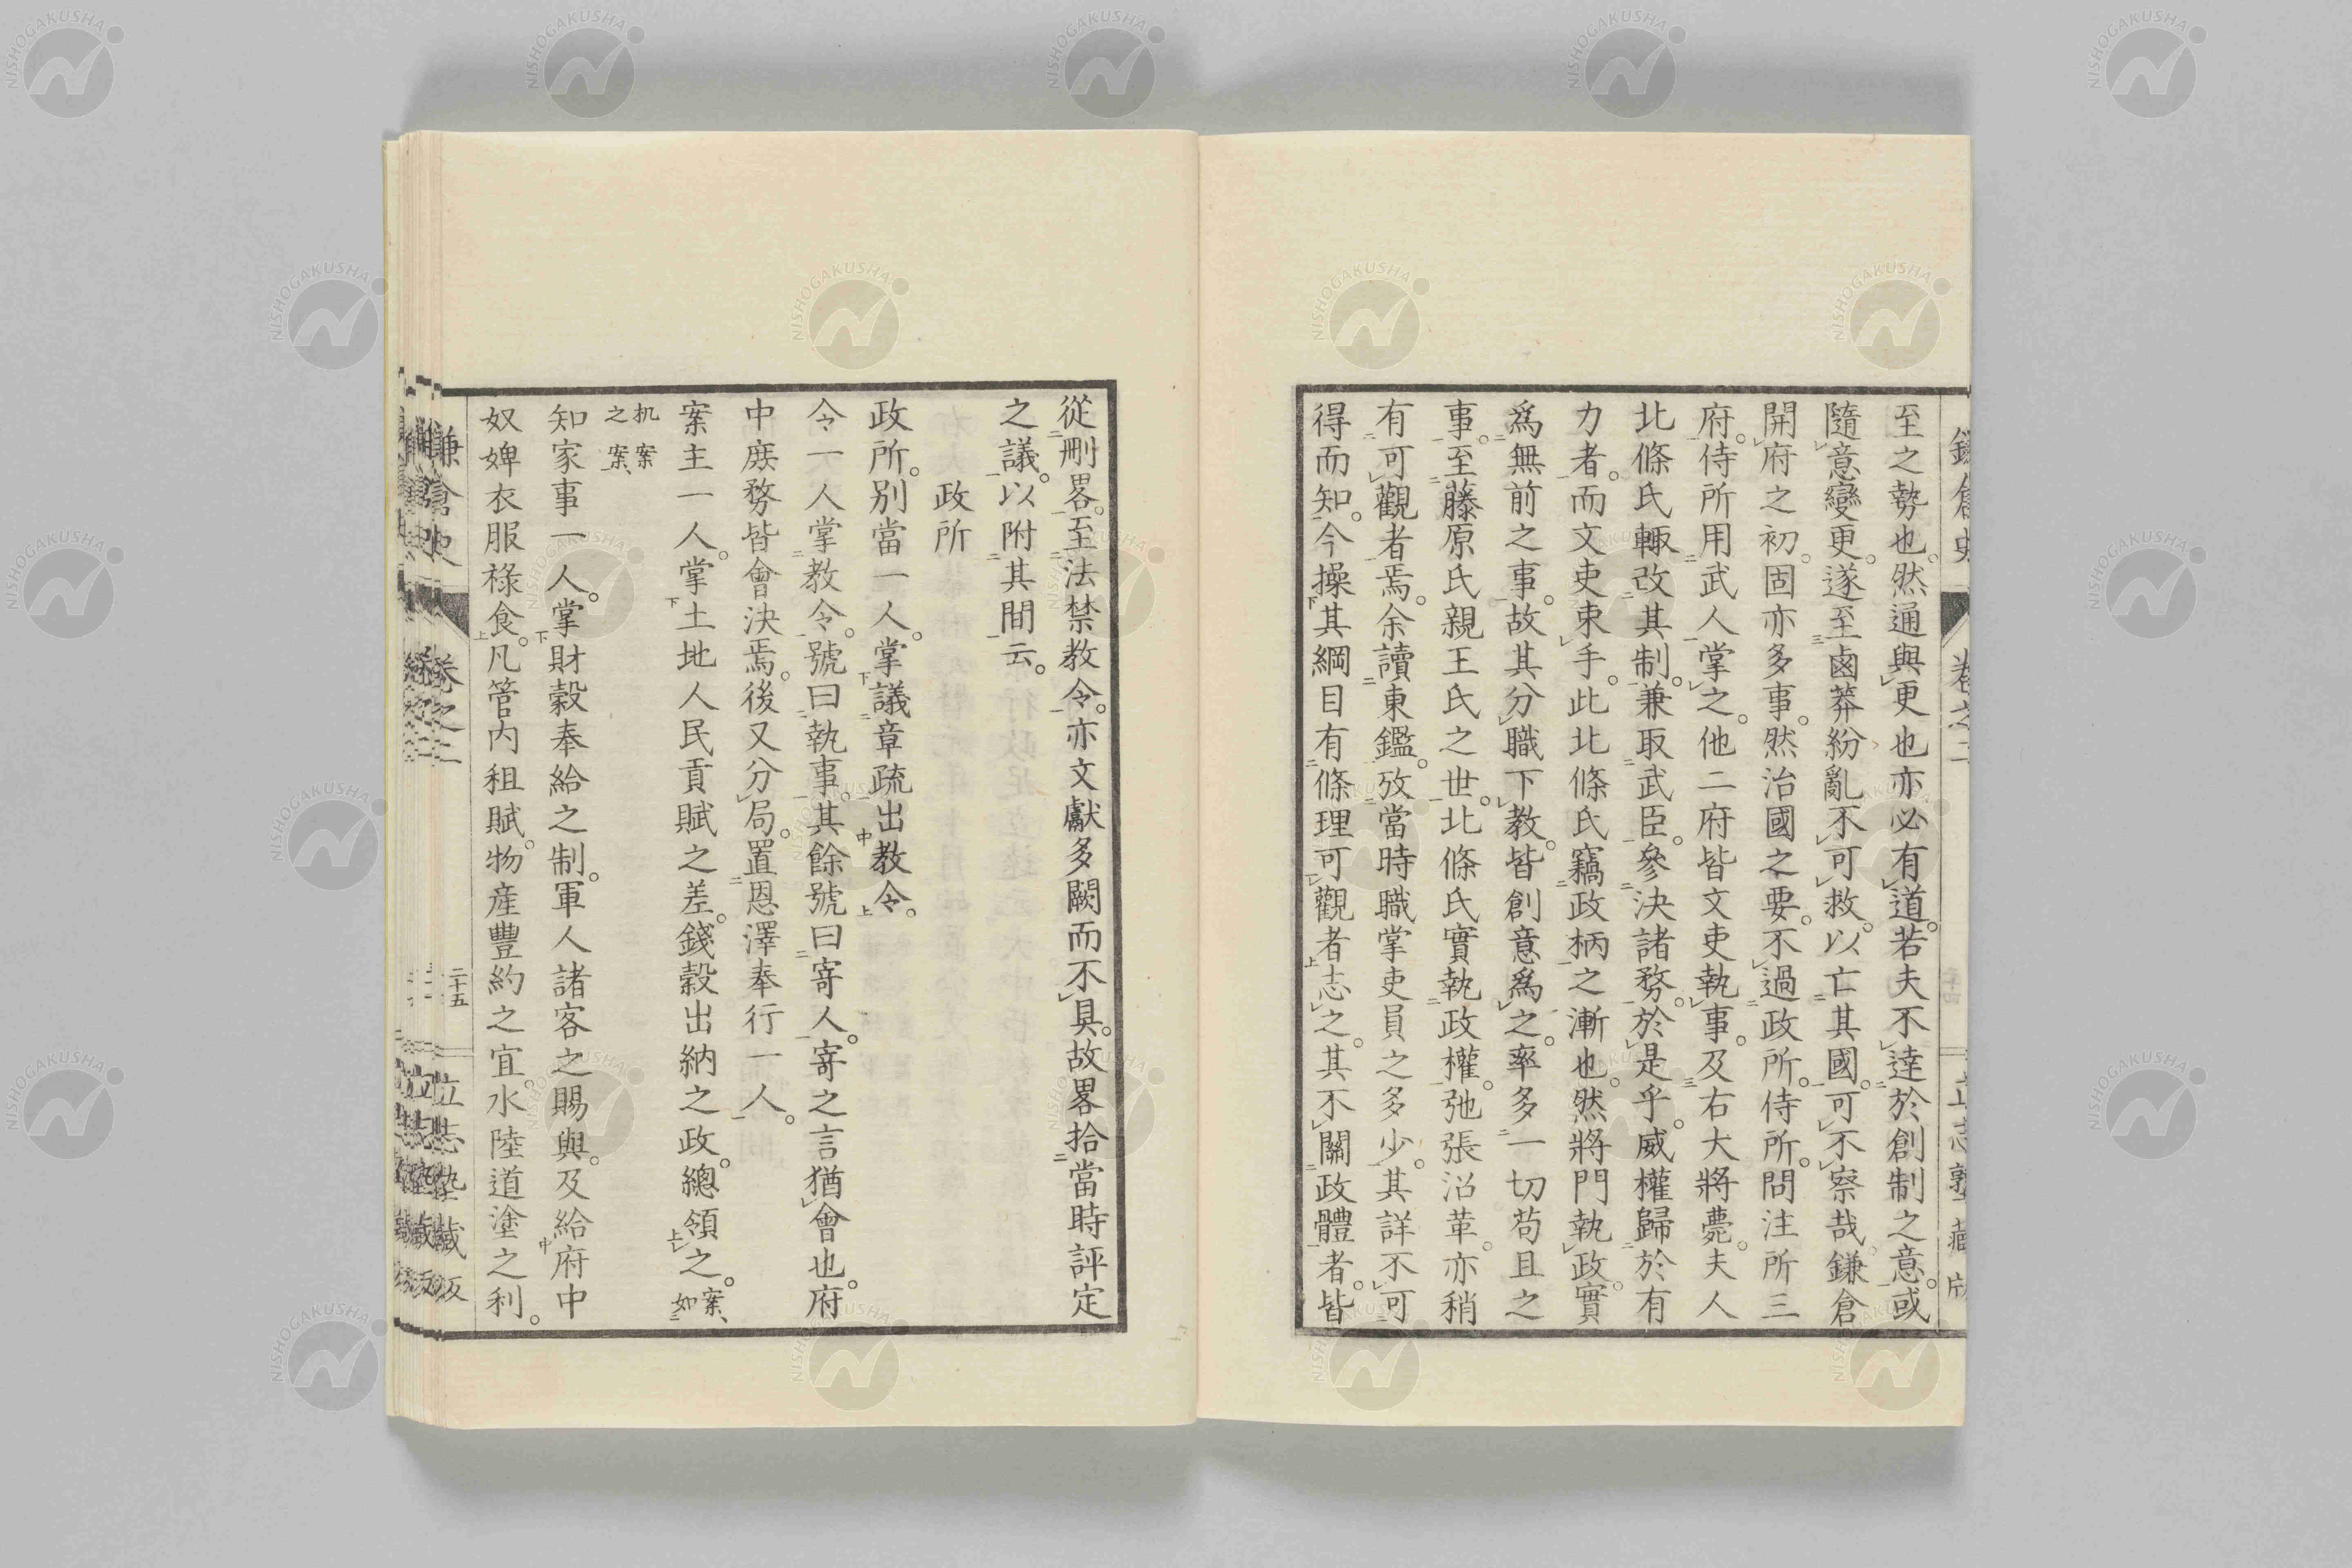 至之勢也。然通與更也亦必有道。若夫不達於創制之意。或
隨意變更。遂至鹵莽紛亂不可救。以亡其國。可不察哉。鎌倉
開府之初。固亦多事。然治國之要。不過政所。侍所。問注所三
府。侍所用武人掌之。他二府皆文吏執事。及右大將薨。夫人
北條氏輙改其制。兼取武臣。參決諸務。於是乎。威權歸於有
力者。而文吏束手。此北條氏竊政柄之漸也。然將門執政。實
爲無前之事。故其分職下教。皆創意爲之。率多一切苟且之
事。至藤原氏親王氏之世。北條氏實執政權。弛張沿革。亦稍
有可觀者焉。余讀東鑑。攷當時職掌吏員之多少。其詳不可
得而知。今操其綱目有條理可觀者志之。其不關政體者。皆
從刪畧。至法禁教令。亦文獻多闕而不具。故畧拾當時評定
之議。以附其間云。
政所
政所。別當一人。掌議章疏出教令。
令一人掌教令。號曰執事。其餘號曰寄人。寄之言猶會也。府
中庶務皆會決焉。後又分局。置恩澤奉行一人。
案主一人。掌土地人民貢賦之差。錢穀出納之政。總領之。案、如
机案之案、
知家事一人。掌財穀奉給之制。軍人諸客之賜與。及給府中
奴婢衣服祿食。凡管内租賦。物産豐約之宜。水陸道塗之利。
卷之二
二十五
NISHOGAKUSHA